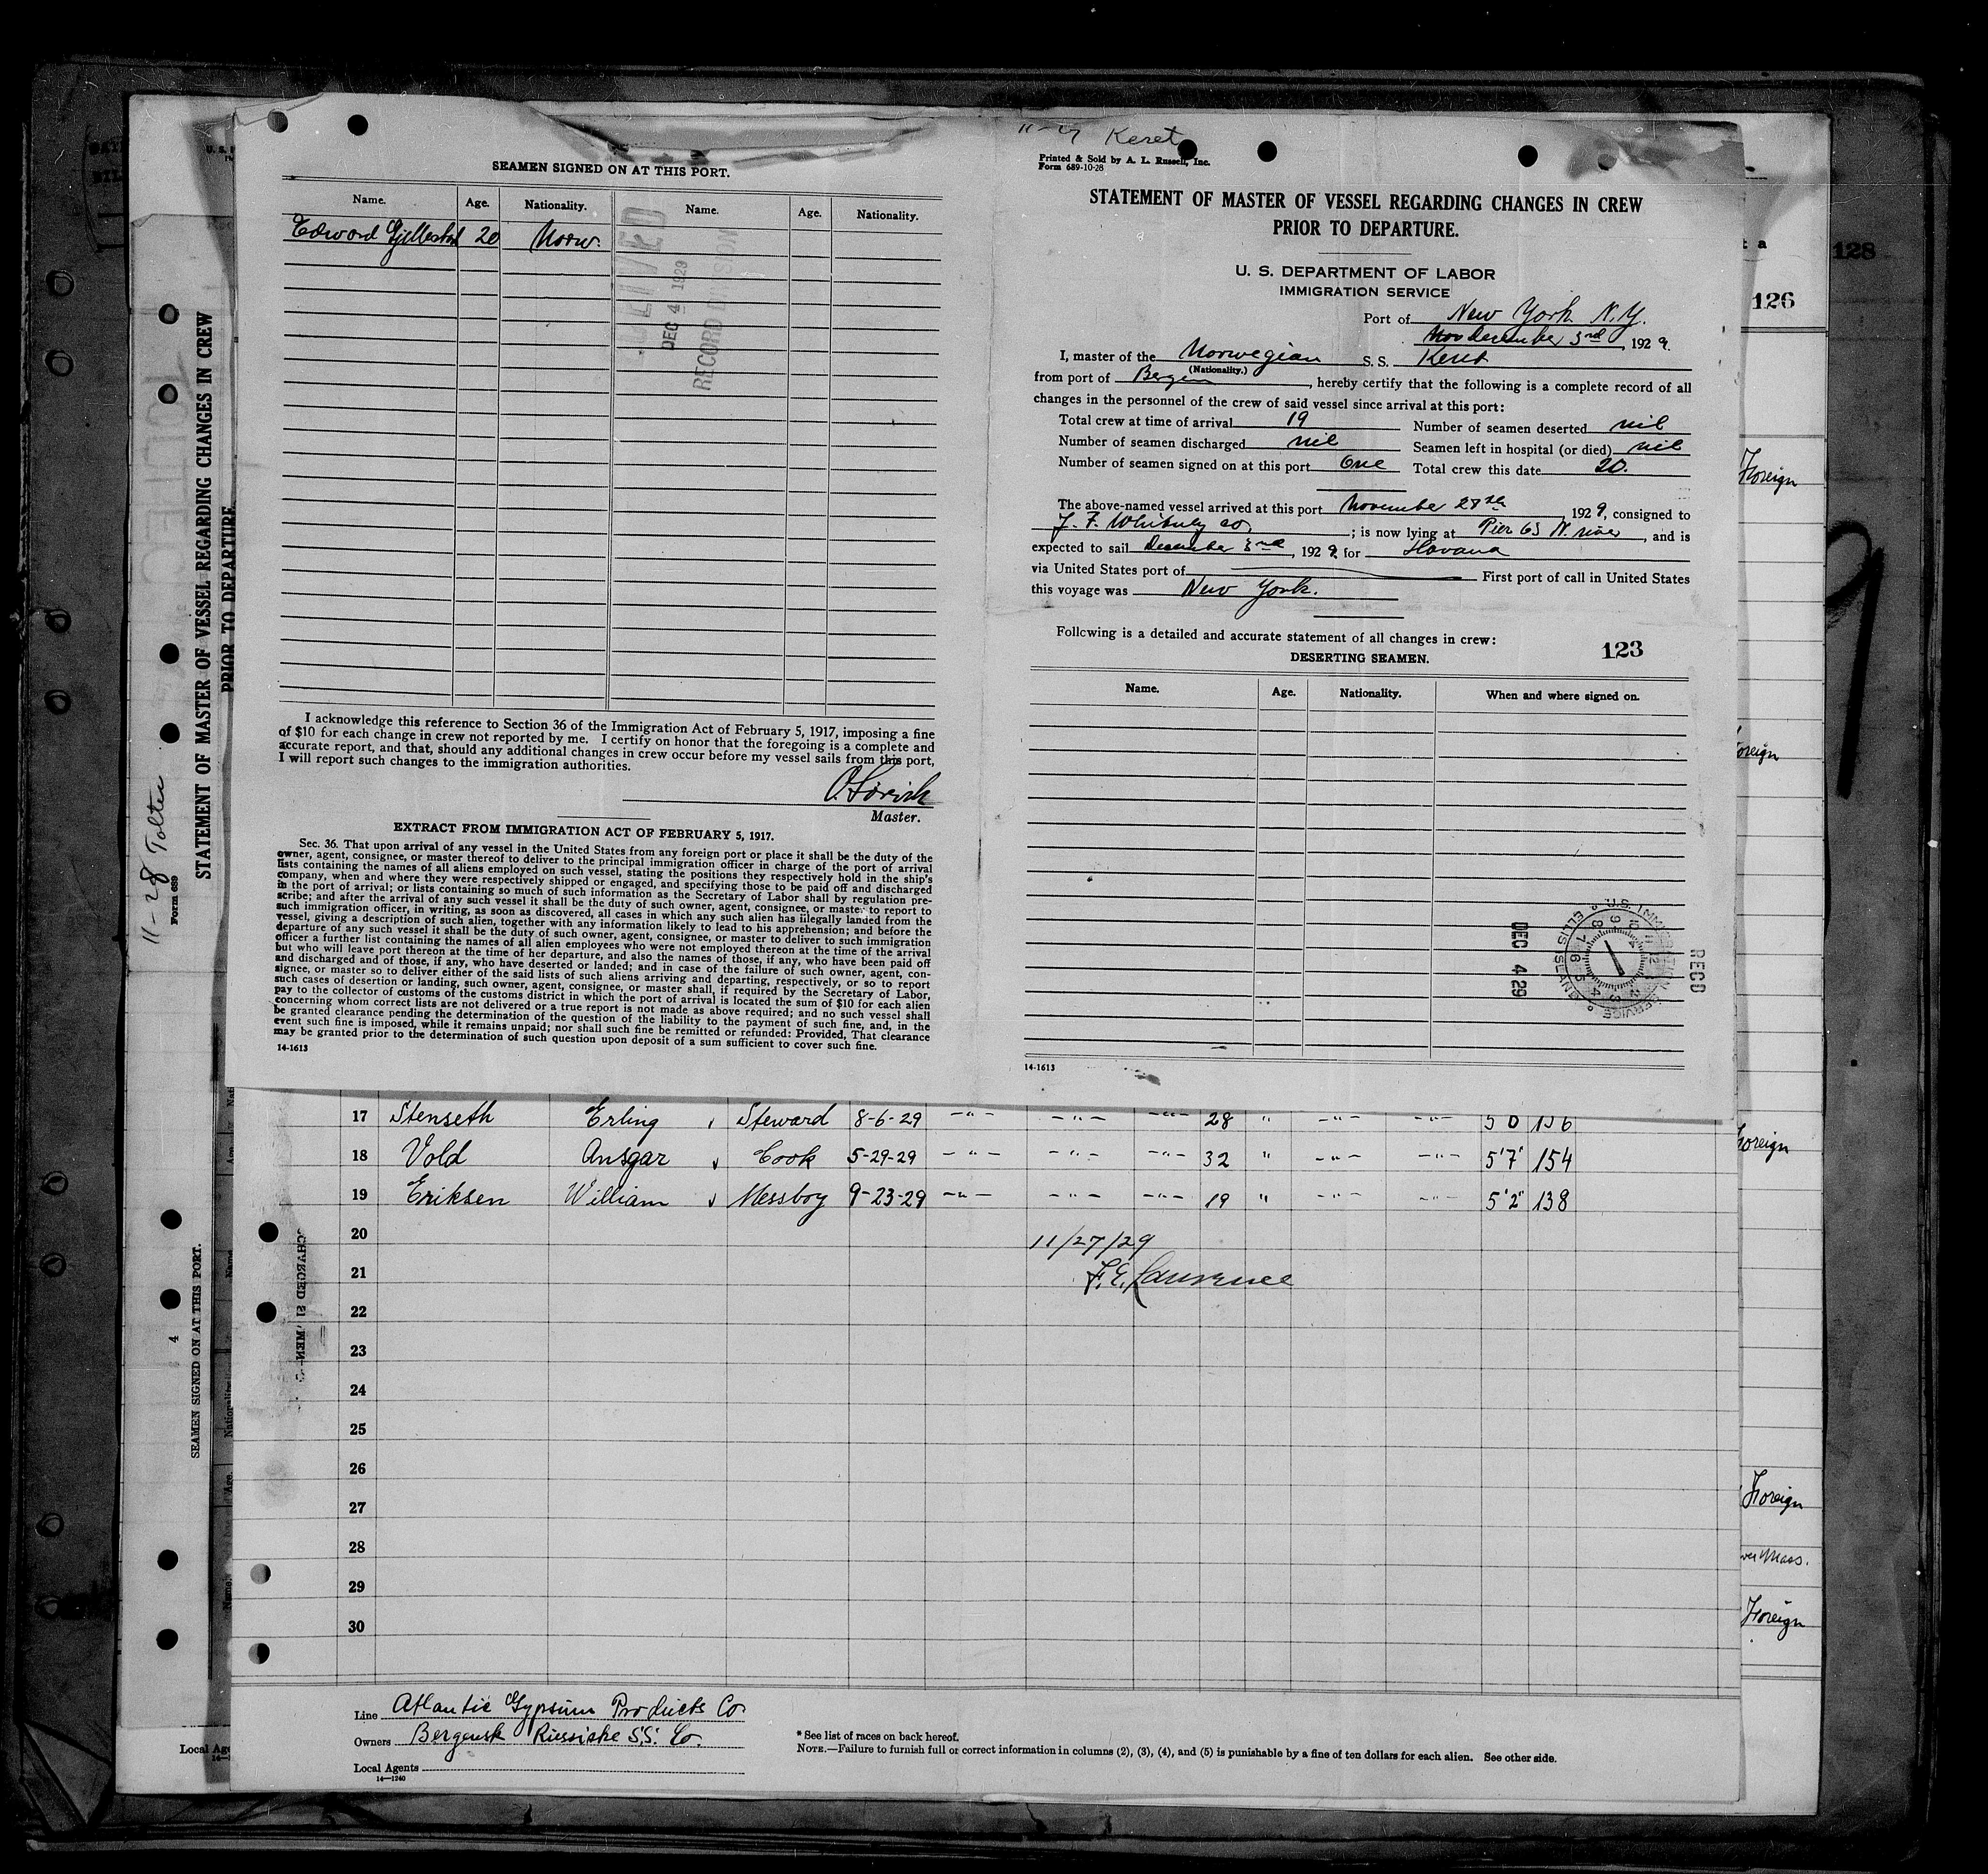 11-27 Keret
Printed & Sold by A. L. Russell, Inc.
Form 689-10-28
STATEMENT OF MASTER OF VESSEL REGARDING CHANGES IN CREW
PRIOR TO DEPARTURE.
U. S. DEPARTMENT OF LABOR
IMMIGRATION SERVICE
Port of New York N.Y.
December 3rd, 1929.
I, master of the Norwegian S. S. Keret
(Nationality.)
from port of Bergen, hereby certify that the following is a complete record of all
changes in the personnel of the crew of said vessel since arrival at this port:
Total crew at time of arrival 19 Number of seamen deserted nil
Number of seamen discharged nil Seamen left in hospital (or died) nil
Number of seamen signed on at this port One Total crew this date 20.
The above-named vessel arrived at this port November 27th, 1929, consigned to
J. F. Whitney Co; is now lying at Pier 65 N. river, and is
expected to sail December 3rd, 1929 for Havana
via United States port of First port of call in United States
this voyage was New York.
Following is a detailed and accurate statement of all changes in crew:
123
DESERTING SEAMEN.
Name. Age. Nationality. When and where signed on.
U.S. IMMIGRATION SERVICE ELLIS ISLAND
DEC 4 29
REC'D
14-1613
SEAMEN SIGNED ON AT THIS PORT.
Name. Age. Nationality. Name. Age. Nationality.
Edward Gjellestad 20 Norw.
RECEIVED
DEC 4 1929
RECORD DIVISION
I acknowledge this reference to Section 36 of the Immigration Act of February 5, 1917, imposing a fine
of $10 for each change in crew not reported by me. I certify on honor that the foregoing is a complete and
accurate report, and that, should any additional changes in crew occur before my vessel sails from this port,
I will report such changes to the immigration authorities.
Master.
EXTRACT FROM IMMIGRATION ACT OF FEBRUARY 5, 1917.
Sec. 36. That upon arrival of any vessel in the United States from any foreign port or place it shall be the duty of the
owner, agent, consignee, or master thereof to deliver to the principal immigration officer in charge of the port of arrival
lists containing the names of all aliens employed on such vessel, stating the positions they respectively hold in the ship's
company, when and where they were respectively shipped or engaged, and specifying those to be paid off and discharged
in the port of arrival; or lists containing so much of such information as the Secretary of Labor shall by regulation pre-
scribe; and after the arrival of any such vessel it shall be the duty of such owner, agent, consignee, or master to report to
such immigration officer, in writing, as soon as discovered, all cases in which any such alien has illegally landed from the
vessel, giving a description of such alien, together with any information likely to lead to his apprehension; and before the
departure of any such vessel it shall be the duty of such owner, agent, consignee, or master to deliver to such immigration
officer a further list containing the names of all alien employees who were not employed thereon at the time of the arrival
but who will leave port thereon at the time of her departure, and also the names of those, if any, who have been paid off
and discharged and of those, if any, who have deserted or landed; and in case of the failure of such owner, agent, con-
signee, or master so to deliver either of the said lists of such aliens arriving and departing, respectively, or so to report
such cases of desertion or landing, such owner, agent, consignee, or master shall, if required by the Secretary of Labor,
pay to the collector of customs of the customs district in which the port of arrival is located the sum of $10 for each alien
concerning whom correct lists are not delivered or a true report is not made as above required; and no such vessel shall
be granted clearance pending the determination of the question of the liability to the payment of such fine, and, in the
event such fine is imposed, while it remains unpaid; nor shall such fine be remitted or refunded: Provided, That clearance
may be granted prior to the determination of such question upon deposit of a sum sufficient to cover such fine.
14-1613
17 Stenseth Erling Steward 8-6-29 -"- -"- -"- 28 " -"- -"- 5 0 156
18 Vold Ansgar Cook 5-29-29 -"- -"- -"- 32 " -"- -"- 5'7" 154
19 Eriksen William Messboy 9-23-29 -"- -"- -"- 19 " -"- -"- 5'2" 138
20
11/27/29
21
F.E. Laurence
22
23
24
25
26
27
28
29
30
Line Atlantic Gypsum Products Co.
Owners Bergensk Russiske S.S. Co.
Local Agents
14-1240
* See list of races on back hereof.
NOTE.—Failure to furnish full or correct information in columns (2), (3), (4), and (5) is punishable by a fine of ten dollars for each alien. See other side.
11-28 Tolten
Form 689
STATEMENT OF MASTER OF VESSEL REGARDING CHANGES IN CREW
PRIOR TO DEPARTURE
4
SEAMEN SIGNED ON AT THIS PORT.
Name. Age. Nationality. Name.
Local Age
128
126
Foreign
oreign
Foreign
Foreign
ver Mass.
Foreign
9